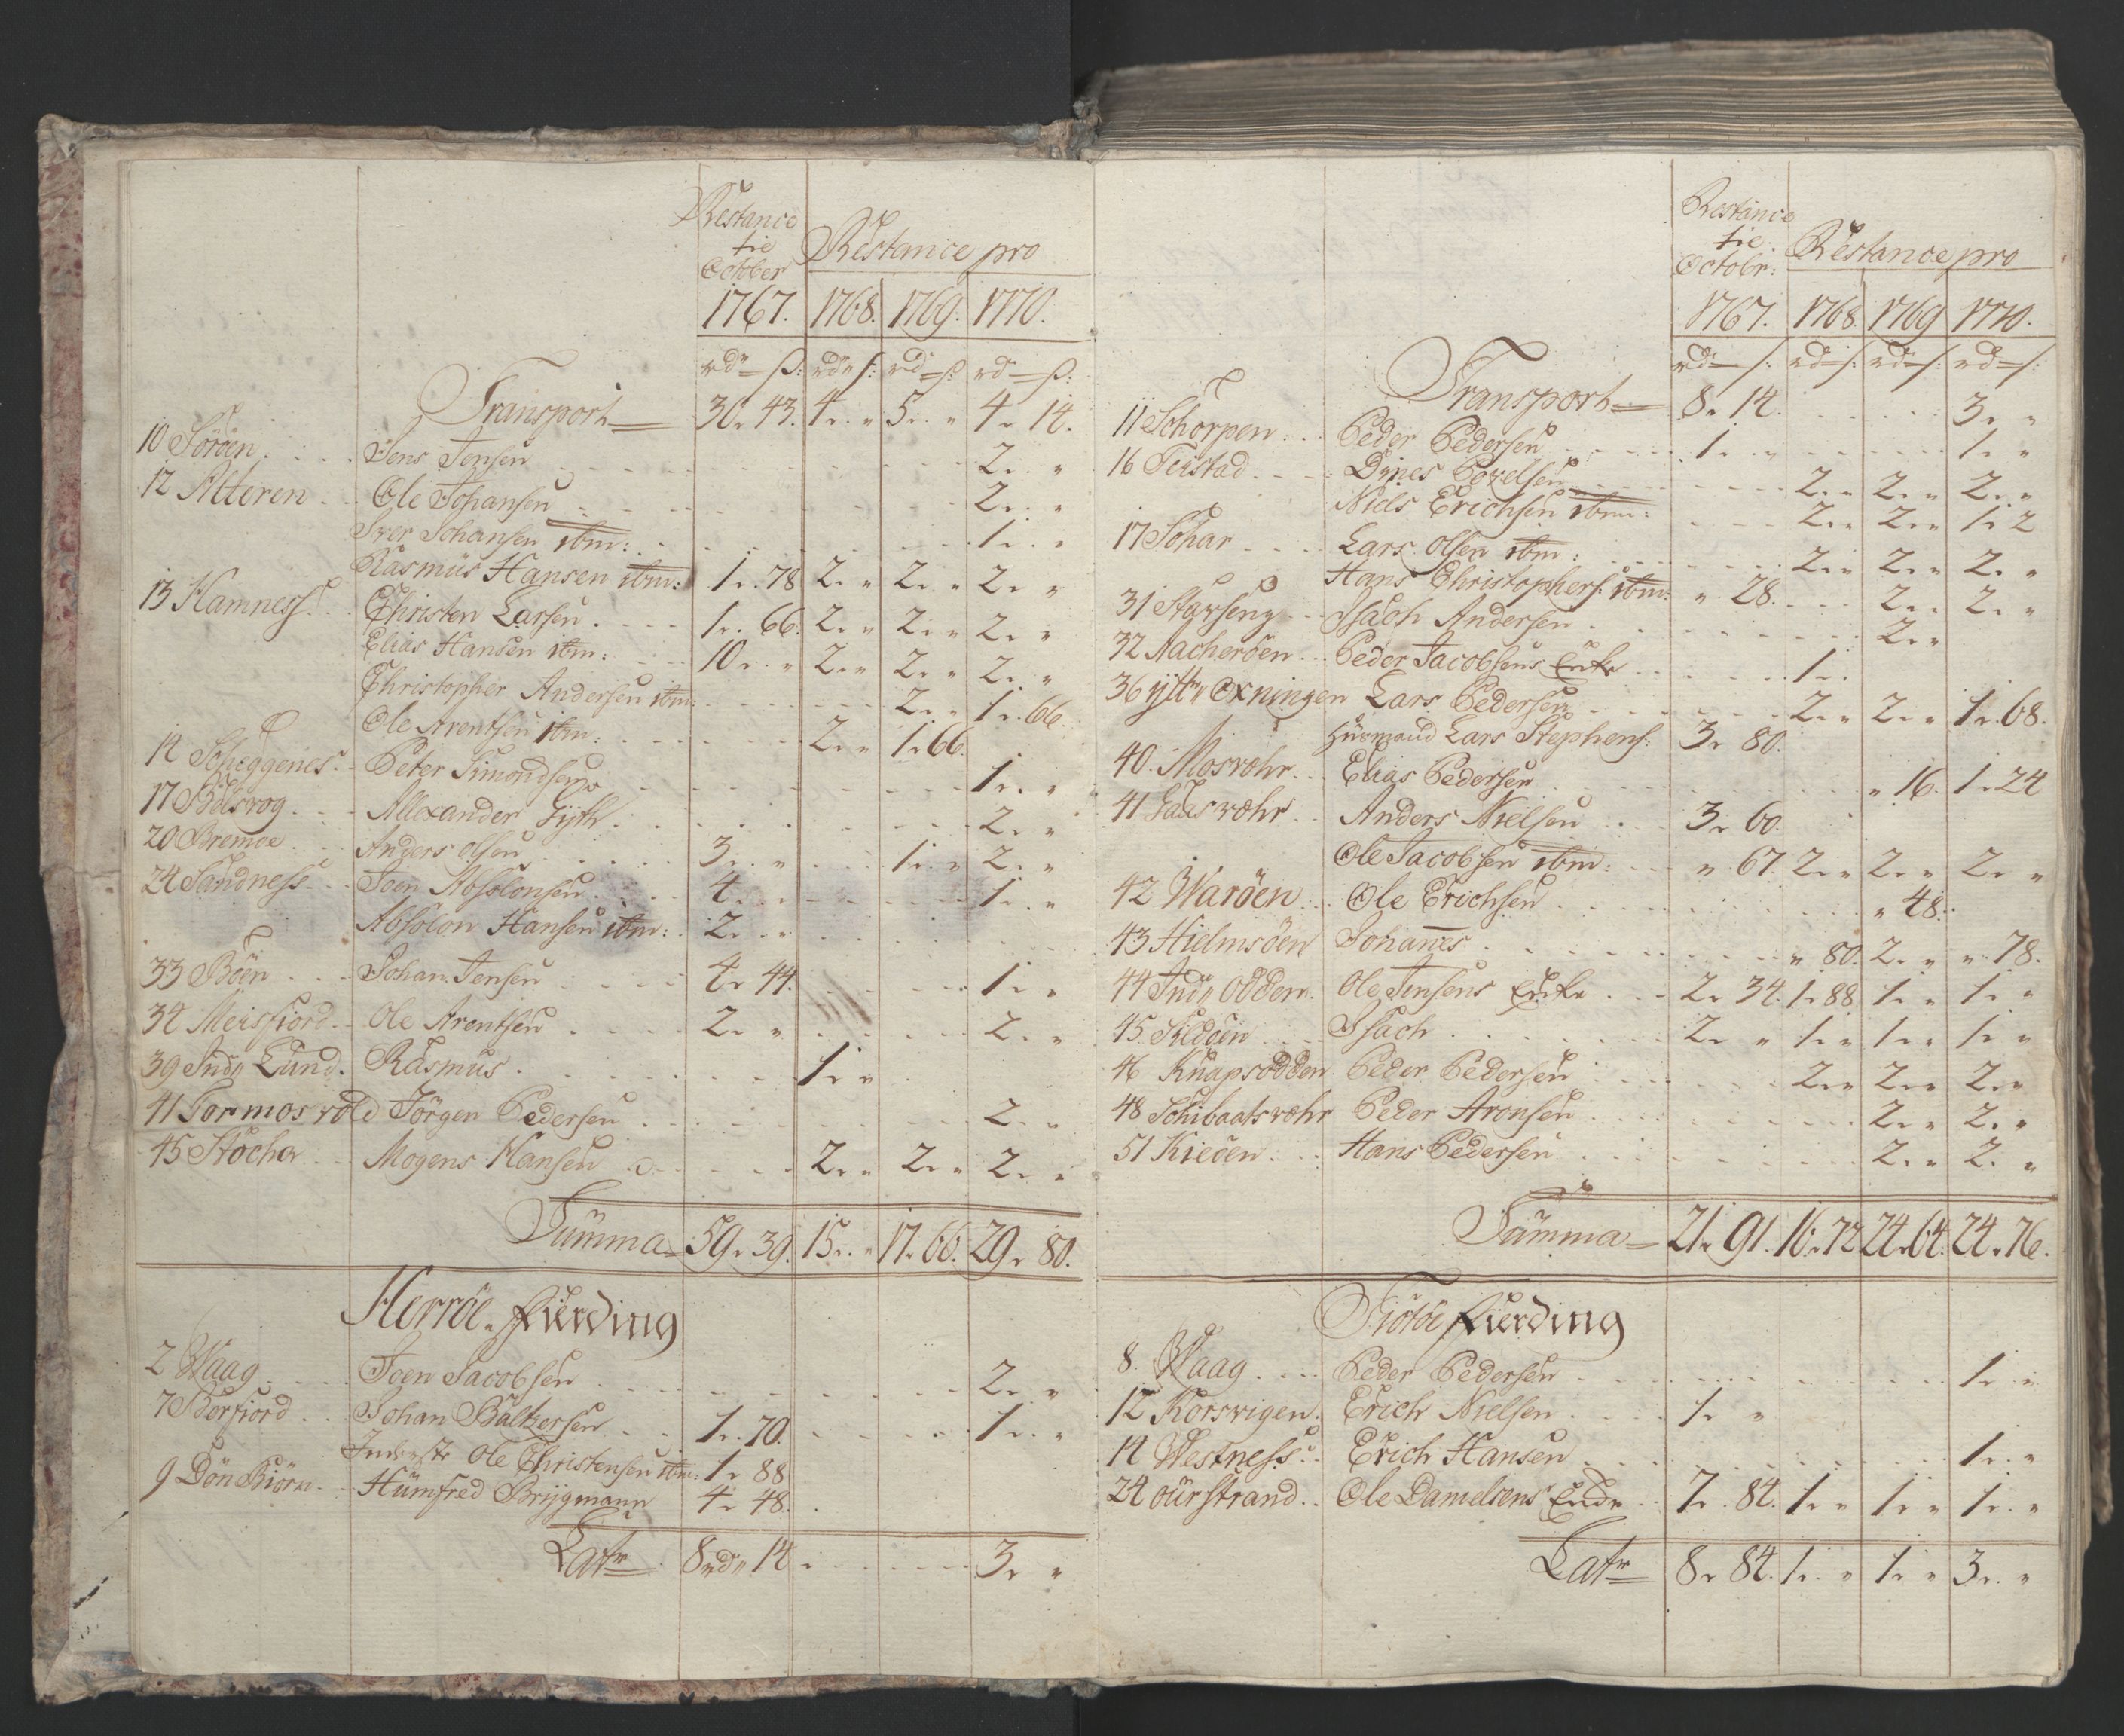 Restance
tie
October
Restance pro
1767. 1768. 1769. 1770.
rd — ß: rd ß: rd ß: rd — ß:
Transport 30 " 43. 4 " " 5 " " 4 " 14.
10 Söröen Jens Jensen 2 " "
12 Alteren Ole Johansen 2 " "
Iver Johansen ibm: 1 " "
Rasmus Hansen ibm: 1 " 78 2 " " 2 " " 2 " "
13 Hamness Christen Larsen 1 " 66. 2 " " 2 " " 2 " "
Elias Hansen ibm: 10 " " 2 " " 2 " " 2 " "
Christopher Andersen ibm: 2 " " 1 " 66.
Ole Arentsen ibm: 2 " " 1 " 66.
14 Scheggenes Peter Simondsen 1 " "
17 Bölsvog Allexander Gyth 2 " "
20 Bremoe Anders Olsen 3 " " 1 " " 2 " "
24 Sandness Joen Absolonsen 4 " " 1 " "
Absolon Hansen ibm: 2 " "
33 Böen Johan Jensen 4 " 44. 1 " "
34 Meisfiord Ole Arentsen 2 " " 2 " "
39 Ind" Lund. Rasmus 1 " "
41 Formosvold Jörgen Pedersen 2 " "
45 Stöcha Mogens Hansen 2 " " 2 " " 2 " "
Summa 59 " 39. 15 " " 17 " 66. 29 " 80.
Herröe Fierding
2 Waag Joen Jacobsen 2 " "
7 Borfiord Johan Baltzersen 1 " 70. 1 " "
Inderste Ole Christensen ibm: 1 " 88
9 Dön Biörn Humfred Brygmann 4 " 48.
Lat" 8 rd" 14 3 " "
Restance
tie
Octobr:
Restance pro
1767. 1768. 1769 1770.
rd — ß: rd ß: rd ß: rd — ß:
Transport 8 " 14. 3 " "
11 Schorpen Peder Pedersen 1 " " 1 " "
16 Teistad Dines Povelsen 2 " " 2 " " 2 " "
Niels Erichsen ibm: 2 " " 2 " " 1 " 2
17 Sohar Lars Olsen ibm: 2 " " 2 " " 2 " "
Hans Christophers: ibm: " 28. 2 " " 2 " "
31 Starseng Isach Andersen 2 " "
32 Nacheröen Peder Jacobsens Enke 1 "
36 ytt" Oxningen Lars Pedersen 2 " " 2 " " 1 " 68.
Huusmand Lars Stephens: 3 " 80.
40. Mosvæhr Elias Pedersen " 16. 1 " 24
41 Gaasvæhr Anders Nielsen 3 " 60.
Ole Jacobsen ibm: " 67. 2 " " 2 " " 2 " "
42 Waröen Ole Erichsen " 48.
43 Hielmsöen Johannes " 80. 2 " " " 78.
44 Ind" Odden Ole Jensens Enke 2 " 34. 1 " 88 1 " " 1 " "
45 Sildöen Isach 2 " " 1 " " 1 " " 1 " "
46 Knapsodden Peder Pedersen 2 " " 2 " " 2 " "
48 Schibaatsvæhr Peder Aronsen 2 " " 2 " "
51 Kieöen Hans Pedersen 2 " " 2 " "
Summa 21 " 91. 16 " 72 24 " 64. 24 " 76.
Tiötöe Fierding
8. Waag Peder Pedersen 1 " "
12 Korsvigen Erich Nielsen 1 " "
14 Westness Erich Hansen 1 " "
24 ourstrand Ole Danielsens Enke 7 " 84. 1 " " 1 " " 1 " "
Lat" 8 " 84. 1 " " 1 " " 3 " "